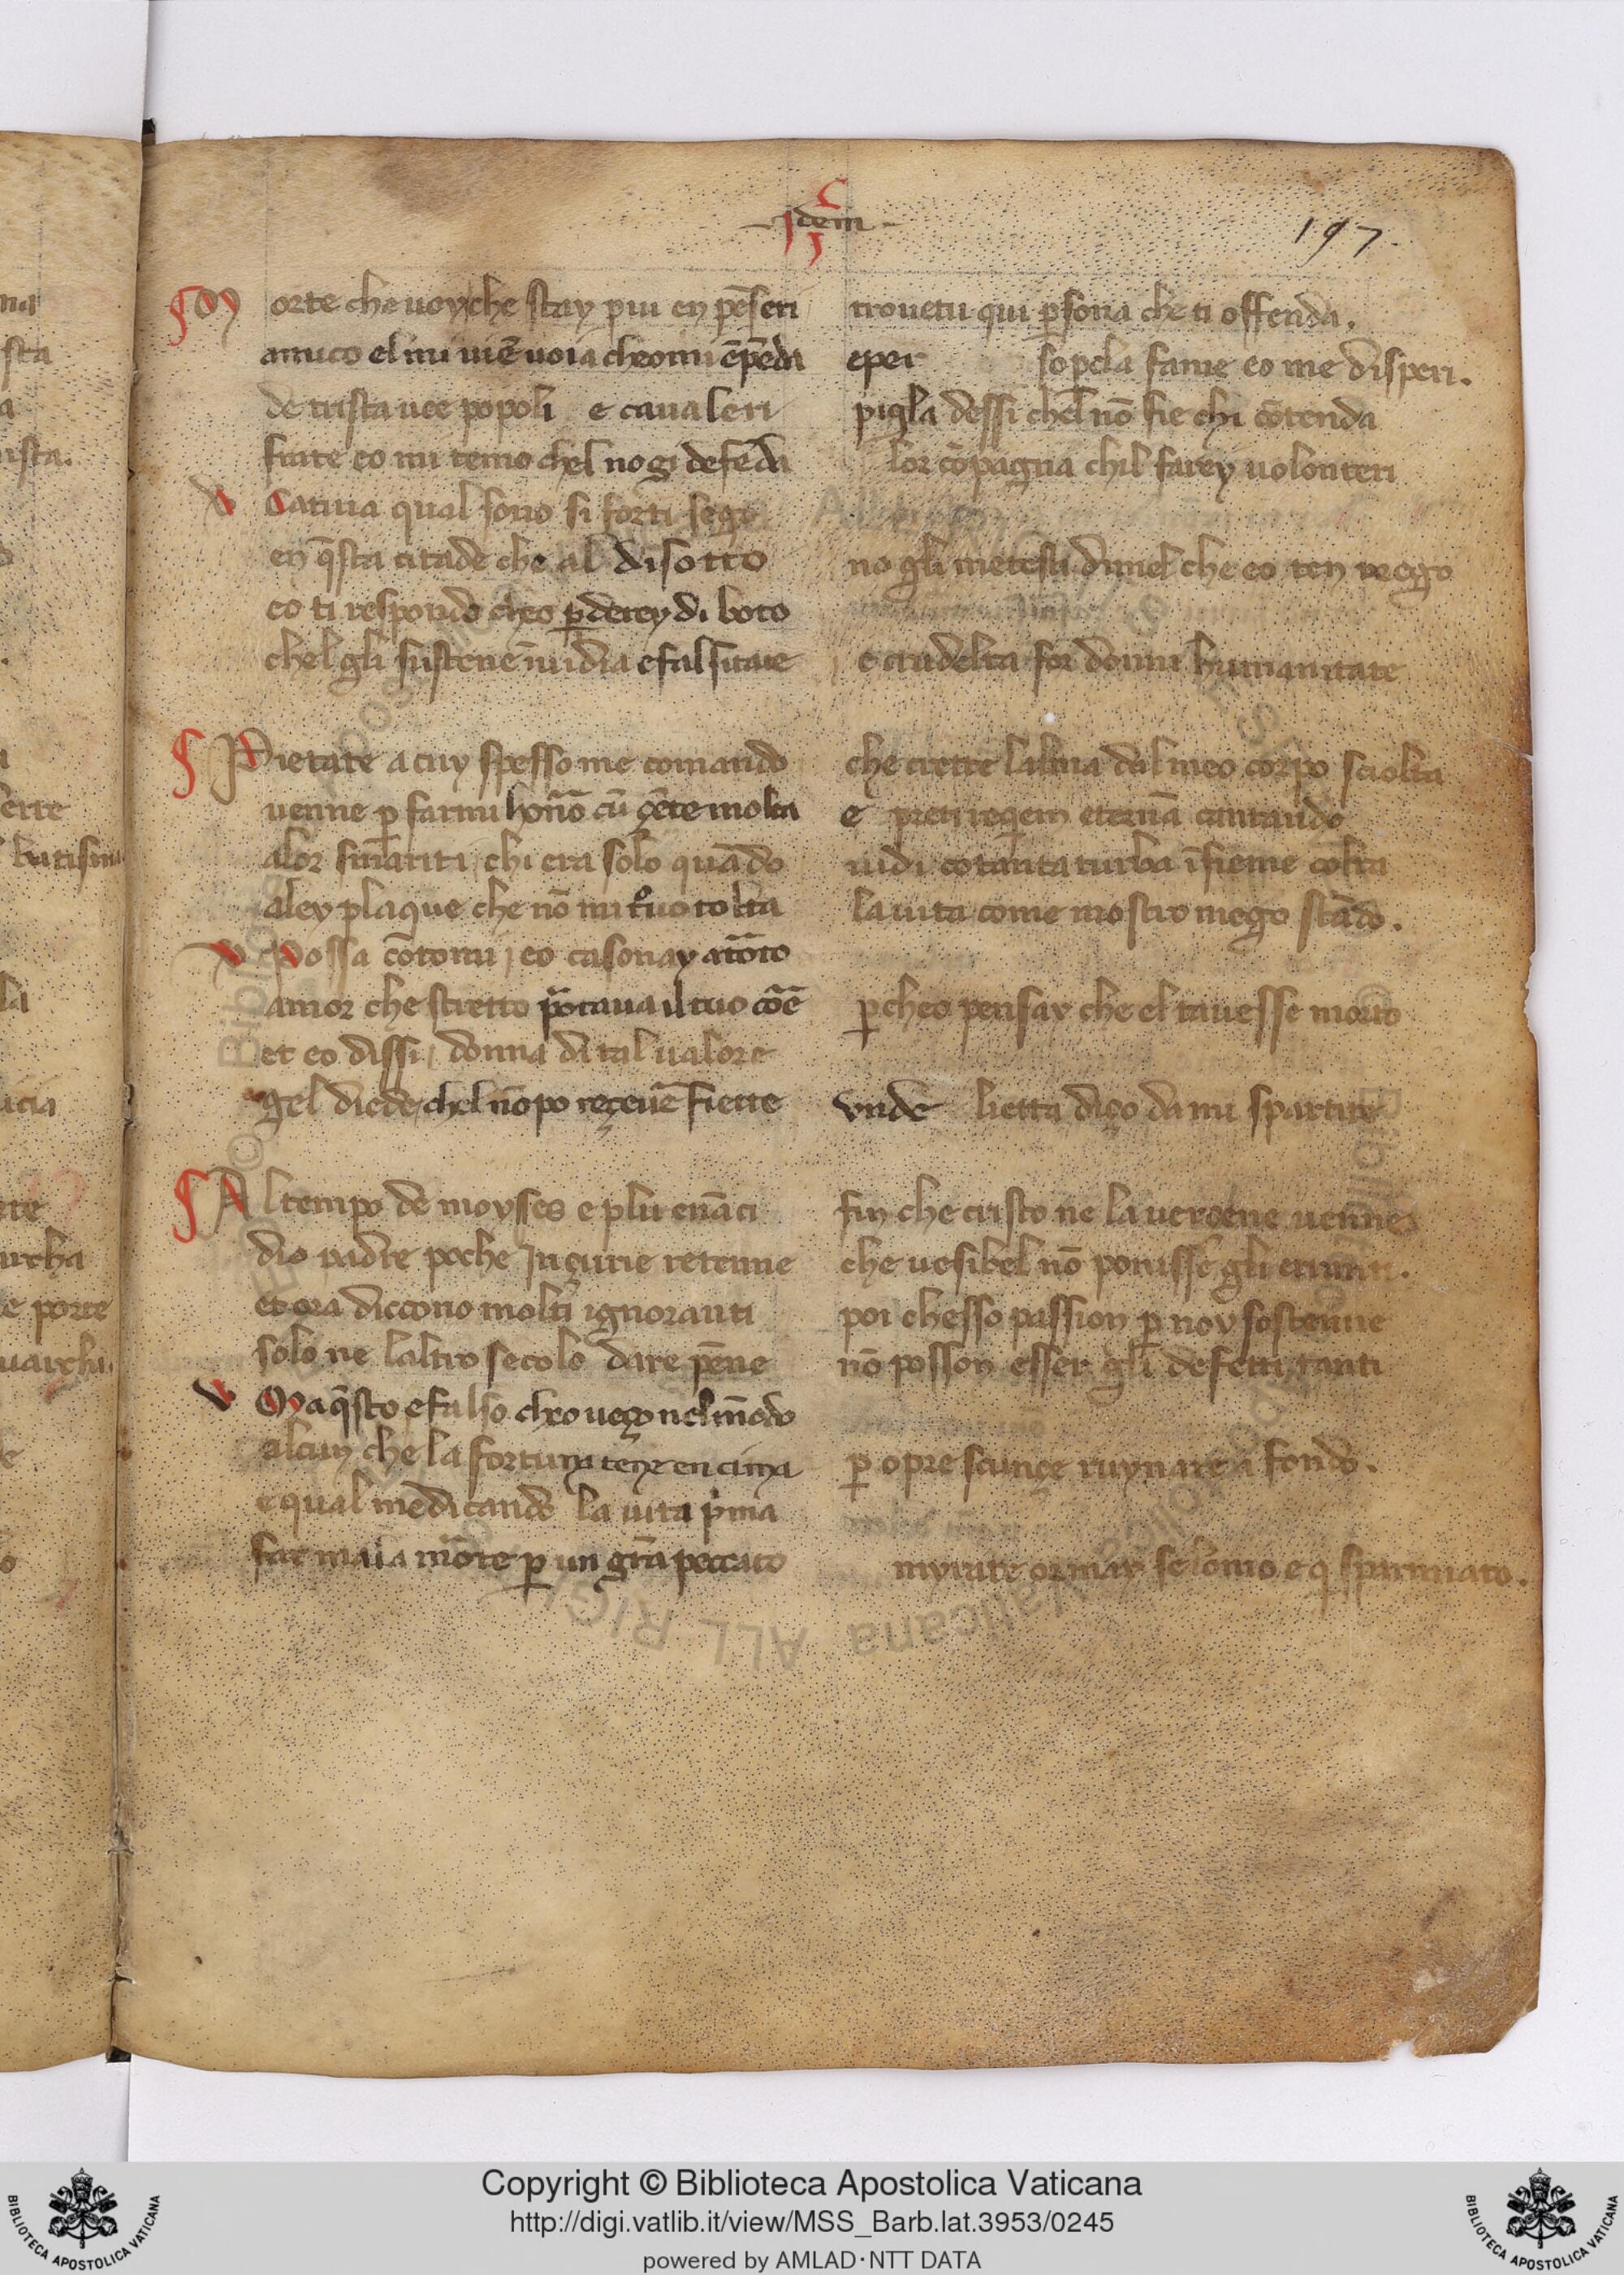 Idem
197
Morte che uoy che stay piu en pēseri
trouetu qui ꝑsona che ti offenda.
amico el mi uiē uoia cheo mi ēpēda
eper so pcla fame eo me disperi.
de trista uee popoli e caualeri
pigla dessi chel nō fie chi cōtenda
friate eo mi temo chel no gi defēda
lor cōpagna chil farey uolonteri
Catiua qual sono si forti sego
en q̄sta citade che al disotto
no gli metesti dimel che eo ten prego
eo ti respondo cheo ꝑderey di boto
chel gli sustene īuidia e falsitate
e crudelta for donni humanitate
Pietate a cuy spesso me comando
che crette lalma dal meo corpo sciolta
uenne ꝑ farmi hōno cū çēte molta
e preti reqem eternā cantando
alor smariti chi era solo quādo
uidi cotanta turba īsieme colta
a ley plaque che nō mi fo tolta
la uita come mostro mego stādo.
Possa cōtomi eo casonay atāto
amor che stretto portaua il tuo cōe
ꝑcheo pensay che el tauesse morto
et eo dissi donna di tal ualore
gel diede chel nō po reçeuē fiette
unde lietta diço da mi spartire
Al tempo de moyses e plu enāci
fin che cristo ne la uergene uenne
dio padre poche Inçurie retenne
che uesibel nō ponisse gli erranti.
et ora diccono molti ignoranti
poi chesso passion ꝑ noy sostenne
solo ne laltro secolo dare pēne
nō posson esser gli defetti tanti
Ma q̄sto e falso cheo ueço nel mōdo
alcun che la fortuna tene en cima
ꝑ opre scunçe ruynare a fondo.
e qual medicando la uita pima
far mala morte ꝑ un grā peccato
myrate ormay selomo e q sparmiato.
Copyright © Biblioteca Apostolica Vaticana
http://digi.vatlib.it/view/MSS_Barb.lat.3953/0245
powered by AMLAD·NTT DATA
BIBLIOTECA APOSTOLICA VATICANA
BIBLIOTECA APOSTOLICA VATICANA